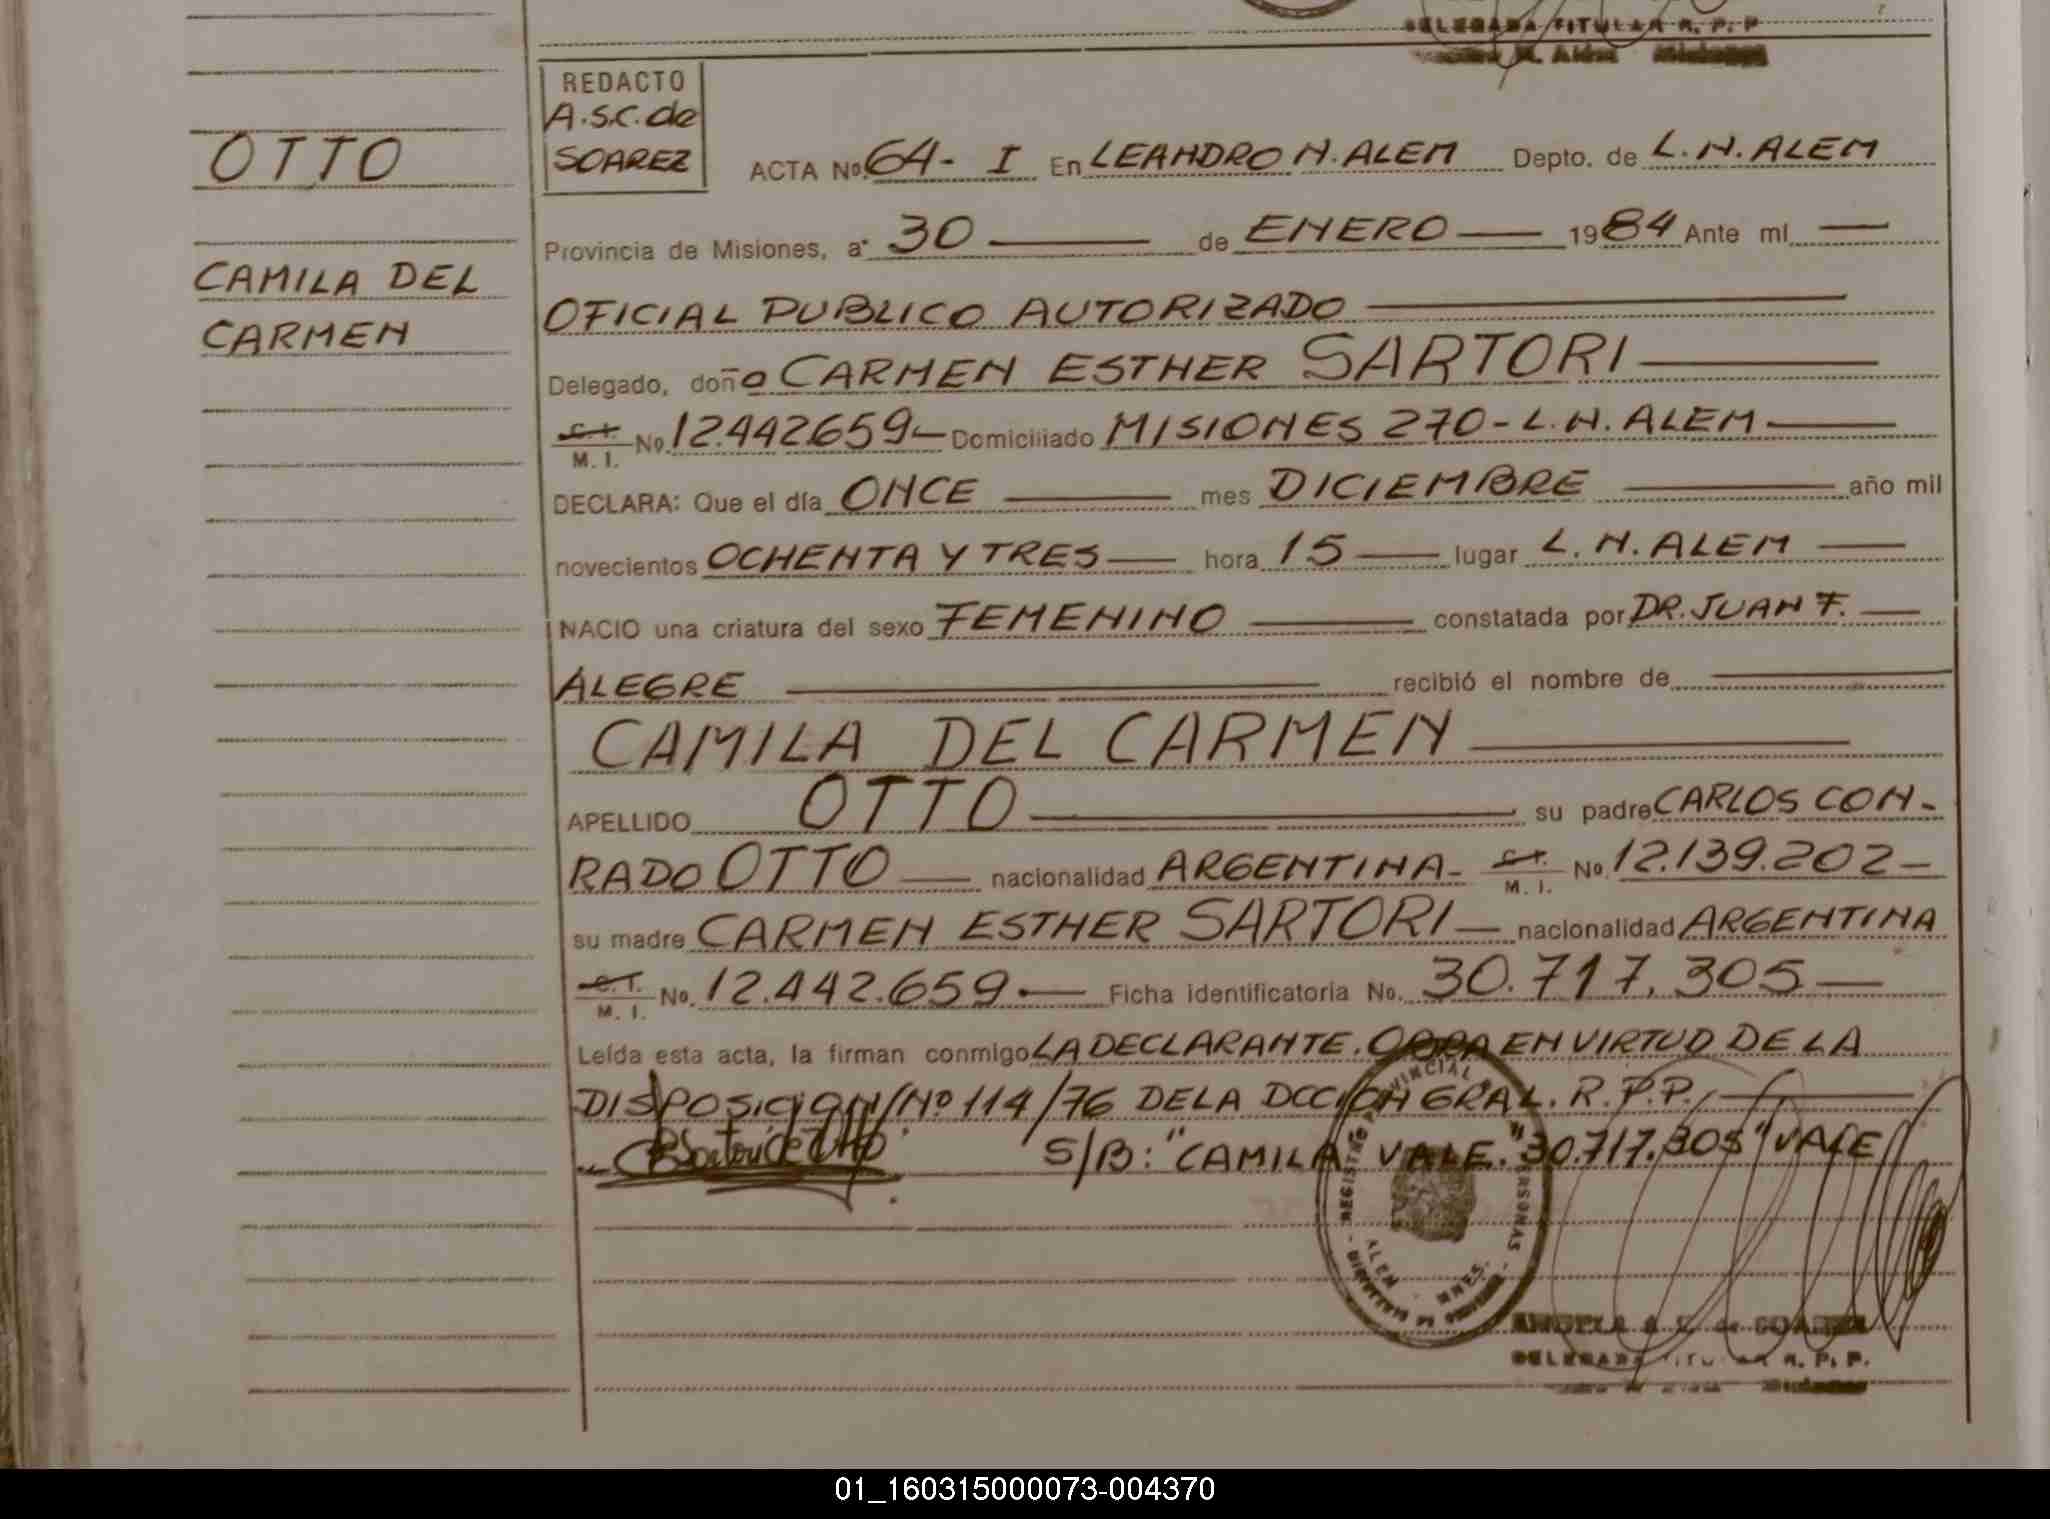 DELEGADA TITULAR R. P. P
REDACTO
A.S.C. de
SOAREZ
OTTO
CAMILA DEL
CARMEN
ACTA No. 64- I En LEANDRO N. ALEM Depto. de L. N. ALEM
Provincia de Misiones, a 30 de ENERO 1984 Ante mí
OFICIAL PUBLICO AUTORIZADO
Delegado, doña CARMEN ESTHER SARTORI
C.I. M. I. No. 12.442.659 Domiciliado MISIONES 270 - L. N. ALEM
DECLARA: Que el día ONCE mes DICIEMBRE año mil
novecientos OCHENTA Y TRES hora 15 lugar L. N. ALEM
NACIO una criatura del sexo FEMENINO constatada por DR. JUAN F.
ALEGRE recibió el nombre de
CAMILA DEL CARMEN
APELLIDO OTTO su padre CARLOS CON-
RADO OTTO nacionalidad ARGENTINA- C.I. M. I. No. 12.139.202-
su madre CARMEN ESTHER SARTORI nacionalidad ARGENTINA
C.I. M. I. No. 12.442.659.- Ficha identificatoria No. 30.717.305
Leída esta acta, la firman conmigo LA DECLARANTE. OBRA EN VIRTUD DE LA
DISPOSICION Nº 114/76 DE LA DCCION GRAL. R.P.P.
S/B: "CAMILA VALE." 30.717.305" VALE
REGISTRO PROVINCIAL PERSONAS
ALEM MNES.
ANGELA S. C. de SOAREZ
DELEGADA TITULAR R. P. P.
01_160315000073-004370